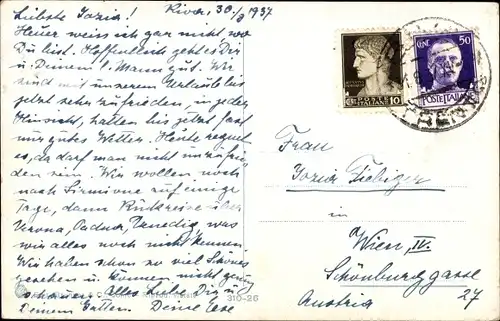 Riva, 30./8 1937
Liebste Fozia!
Heuer weiss ich gar nicht wo
Du bist. Hoffentlich geht es Dir
u. Deinem l. Mann gut. Wir
sind mit unserem Urlaub bis
jetzt sehr zufrieden, in jeder
Hinsicht, hatten bis jetzt fast
nur gutes Wetter. Heute regnet
es, da darf man nicht unzufrie-
den sein. Wir wollen noch
nach Sirmione auf einige
Tage, dann Rückreise über
Verona, Padua, Venedig, was
wir alles noch nicht kennen.
Wir haben schon so viel Schönes
gesehen u. können nicht genug
schauen. Alles Liebe Dir u.
Deinem Gatten. Deine
310-26
10
CENT. 50
POSTE ITALIANE
Frau
in
Wien, IV.
Schönburggasse
27
Austria